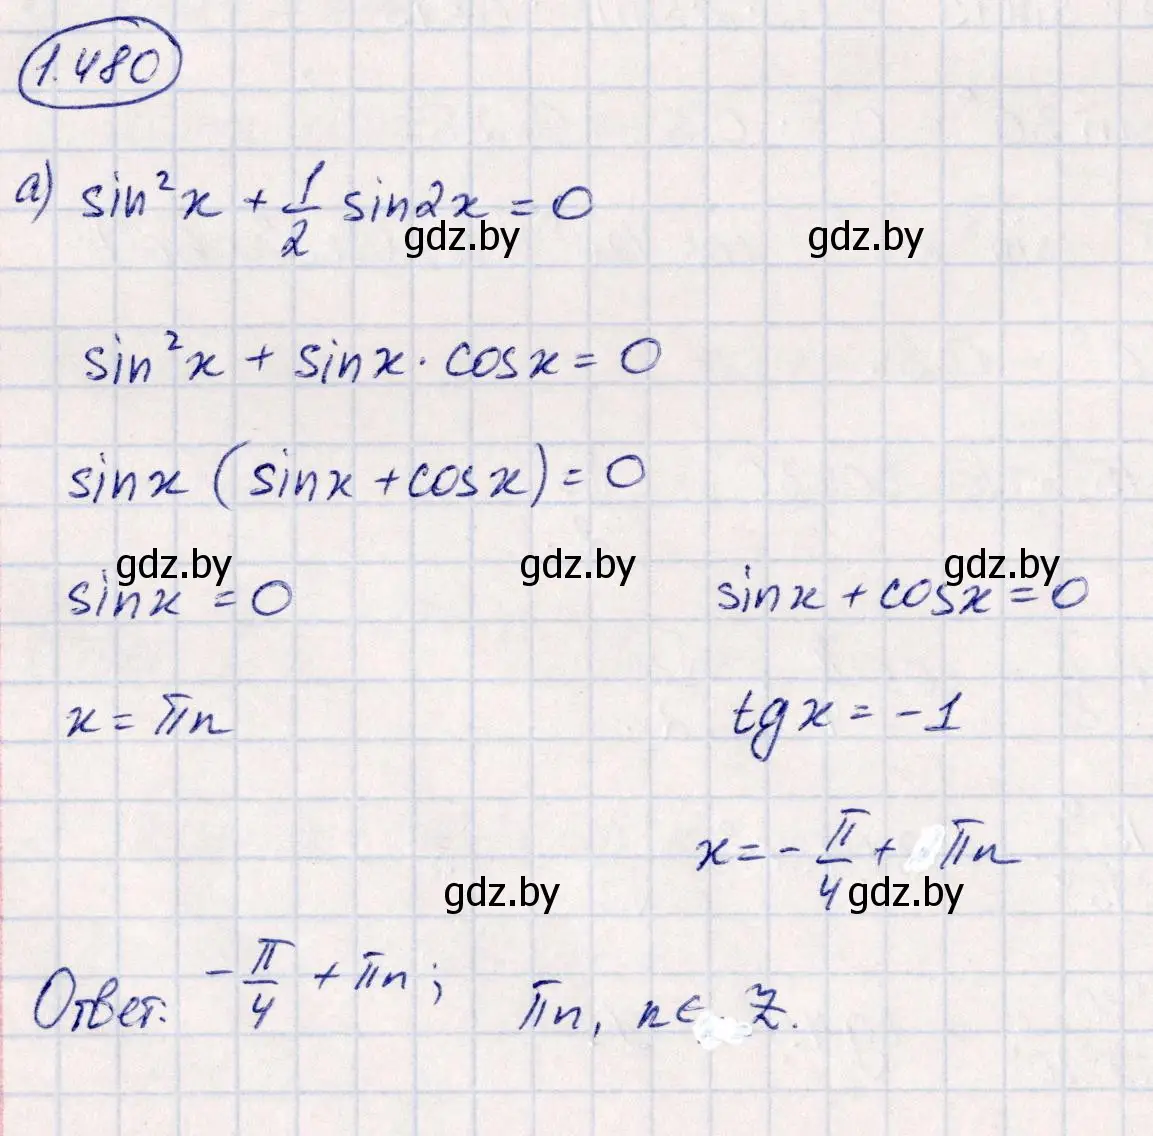 1.480
а) sin²x + 1/2 sin2x = 0
gdz.by gdz.by
sin²x + sinx · cosx = 0
sinx (sinx + cosx) = 0
gdz.by gdz.by gdz.by
sinx = 0 sinx + cosx = 0
x = πn tgx = -1
x = - π/4 + πn
gdz.by gdz.by
Ответ: - π/4 + πn; πn, n ∈ Z.